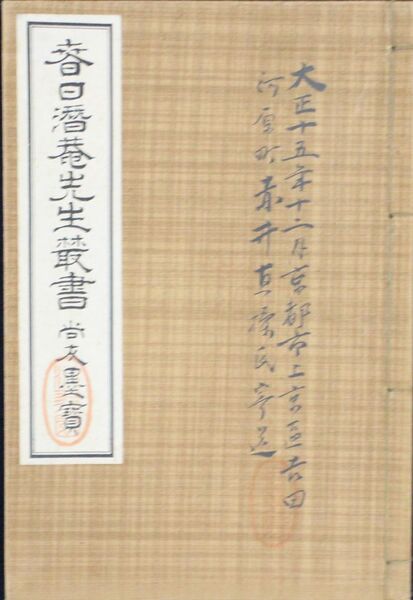 大正十五年十二月京都市上京区吉田
河原町青井直漂氏寄送
春日潜菴先生叢書 尚友墨寶